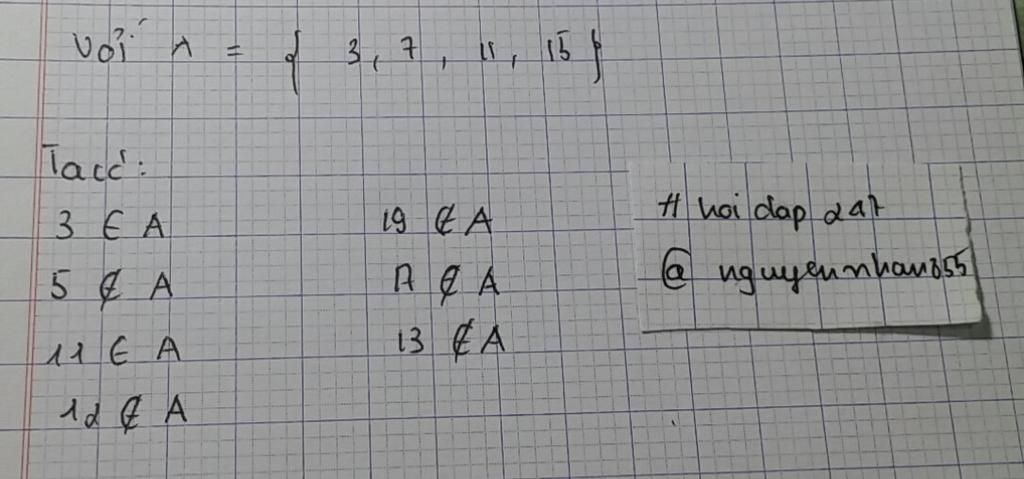 Với A = { 3, 7, 11, 15 }
Ta có:
3 ∈ A
5 ∉ A
11 ∈ A
12 ∉ A
19 ∉ A
17 ∉ A
13 ∉ A
# hoidap247
@ nguyennhan855